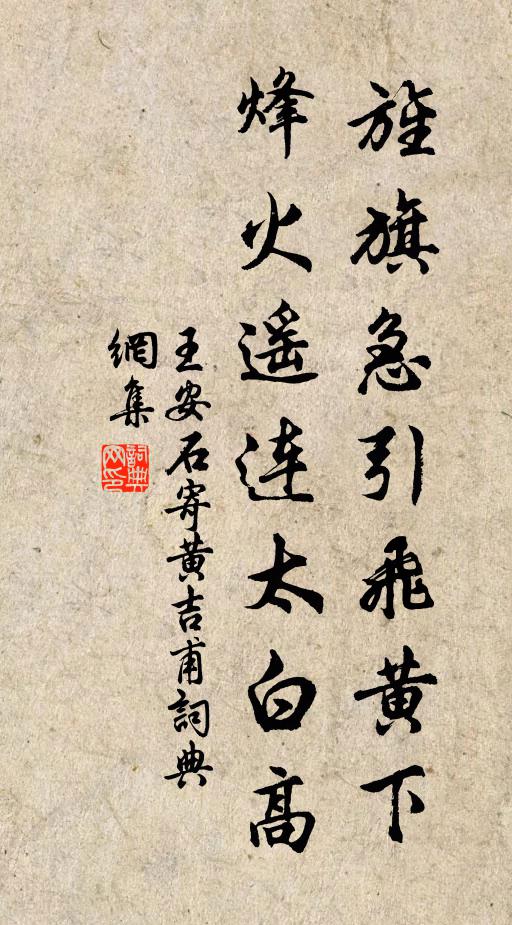 旌旗急引飛黃下
烽火遥連太白高
王安石寄黃吉甫詞典
網集
詞典网印